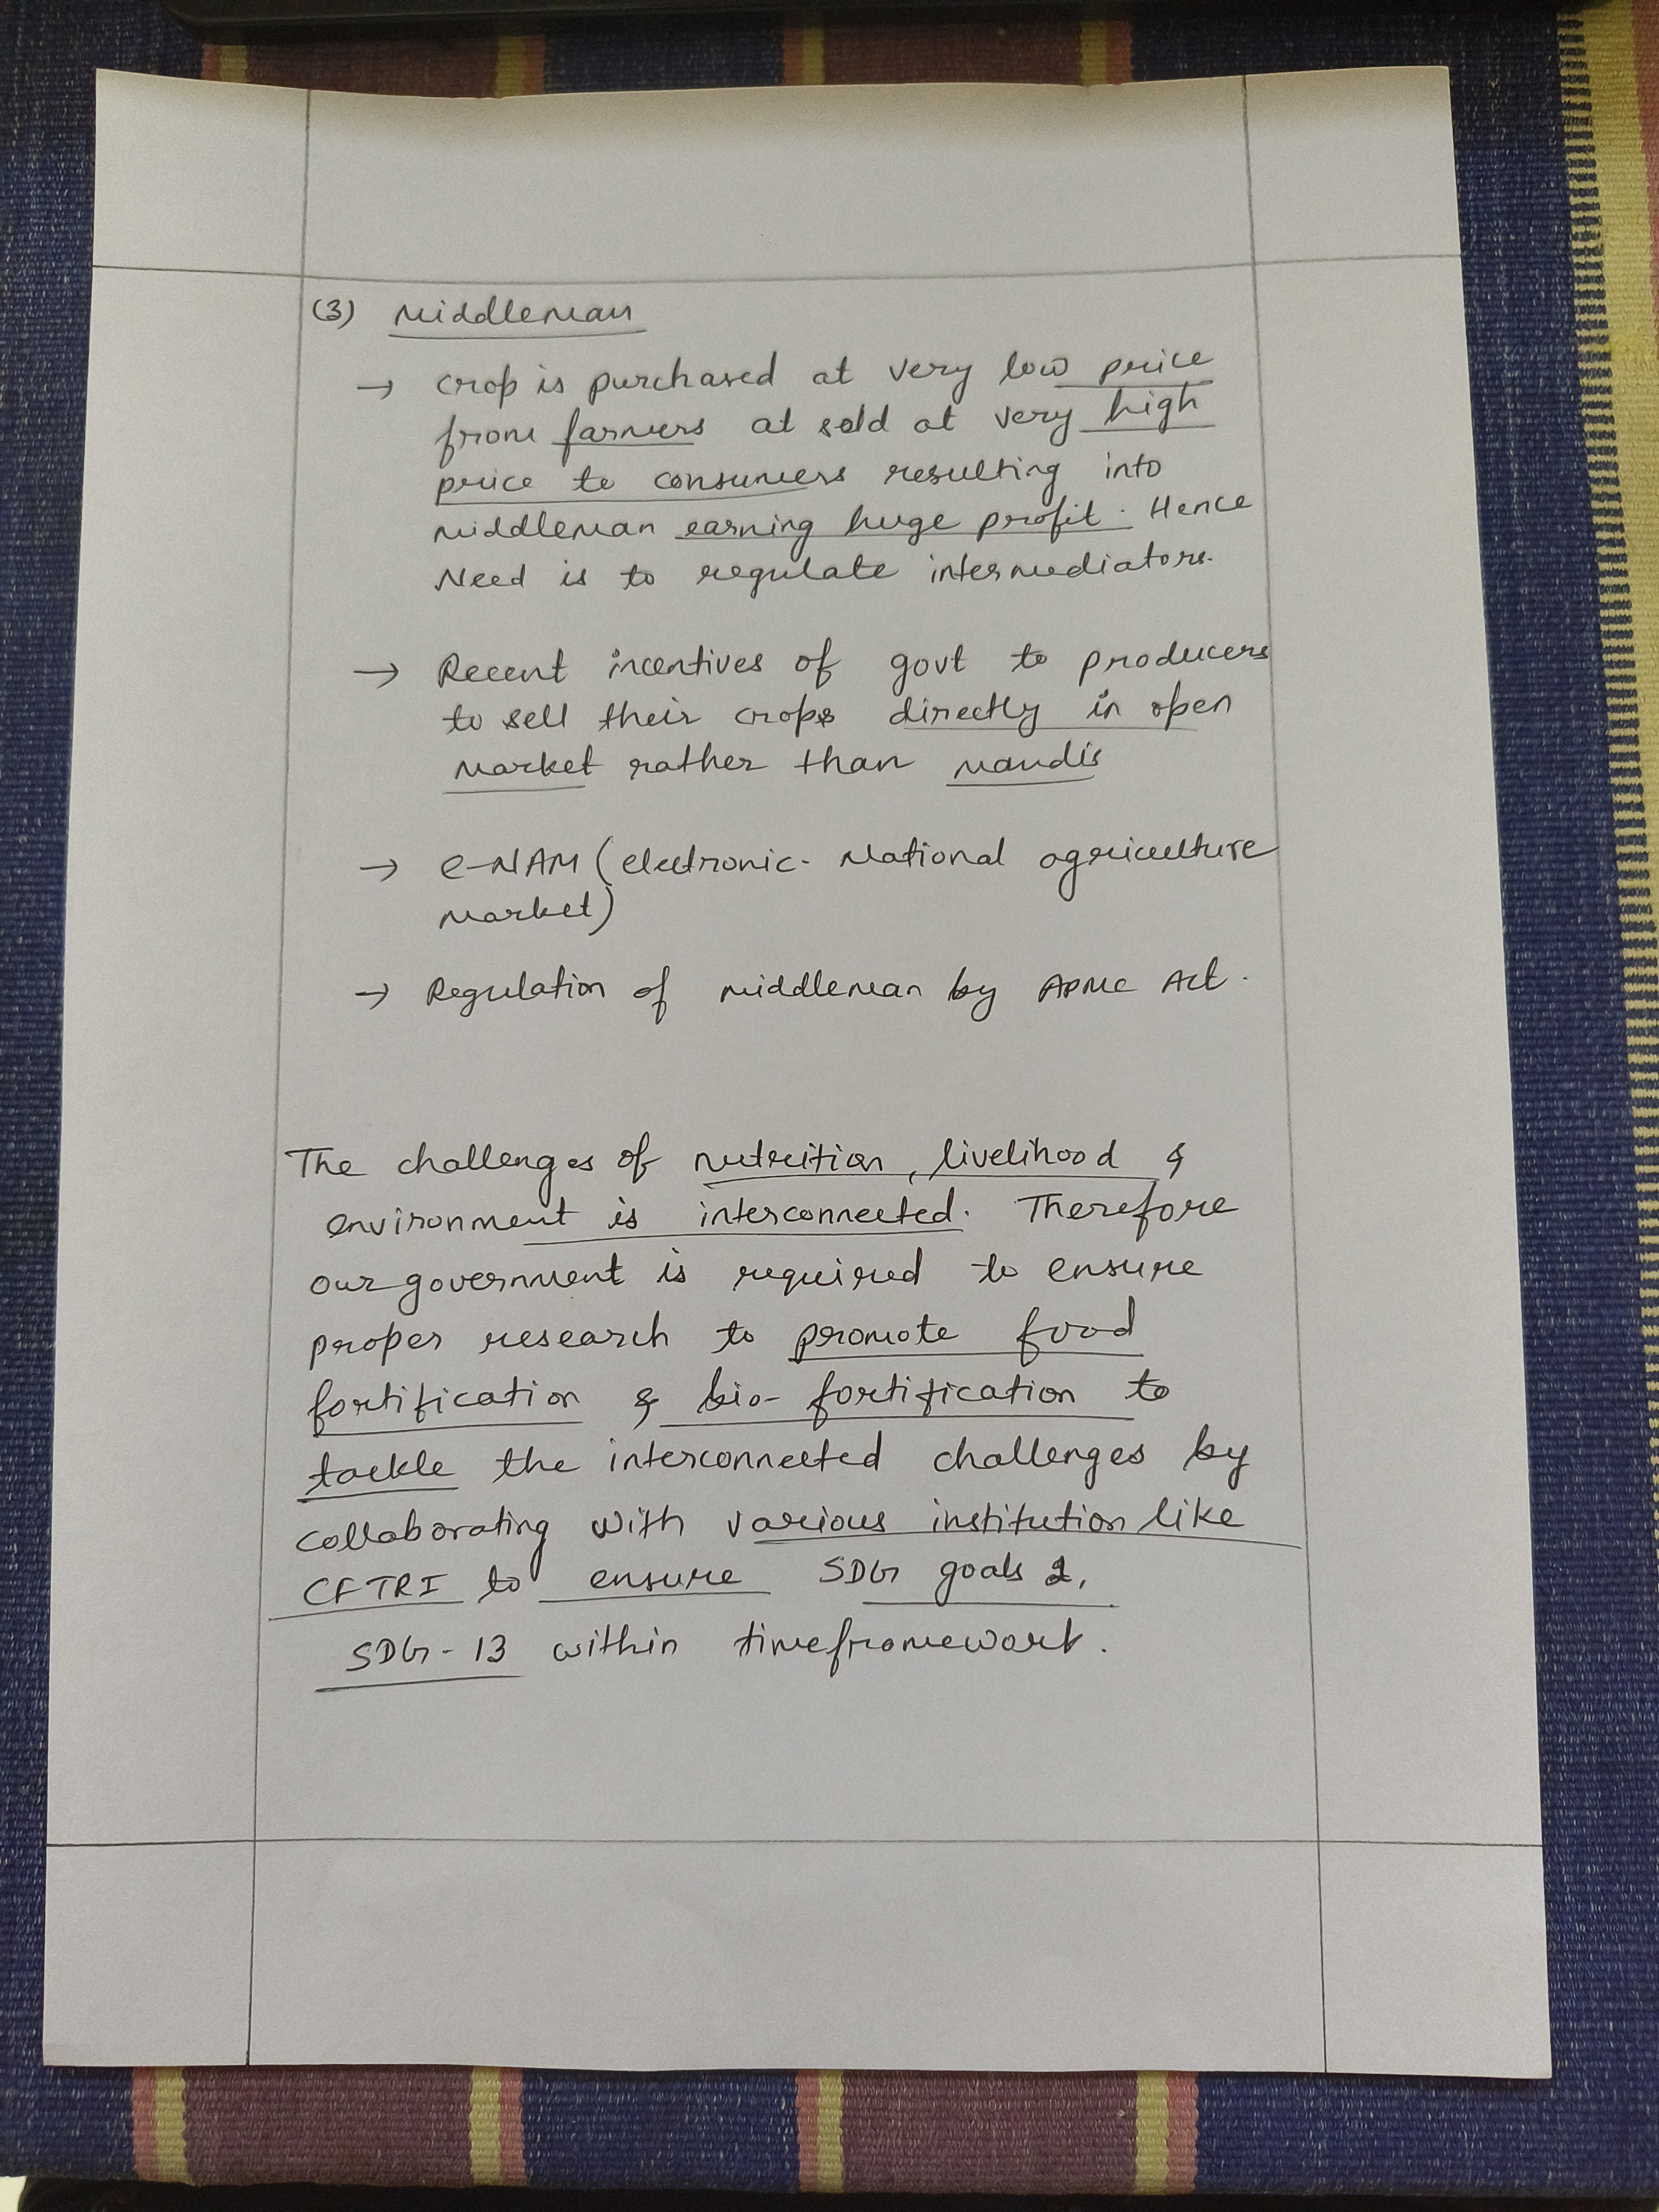 (3) Middleman
→ crop is purchased at very low price
from farmers at sold at very high
price to consumers resulting into
middleman earning huge profit. Hence
Need is to regulate intermediators.
→ Recent incentives of govt to producers
to sell their crops directly in open
market rather than mandis
→ e-NAM (electronic- National agriculture
market)
→ Regulation of middleman by APMC Act.
The challenges of nutrition, livelihood &
environment is interconnected. Therefore
our government is required to ensure
proper research to promote food
fortification & bio- fortification to
tackle the interconnected challenges by
collaborating with various institution like
CFTRI to ensure SDG goals 2,
SDG - 13 within timeframework.